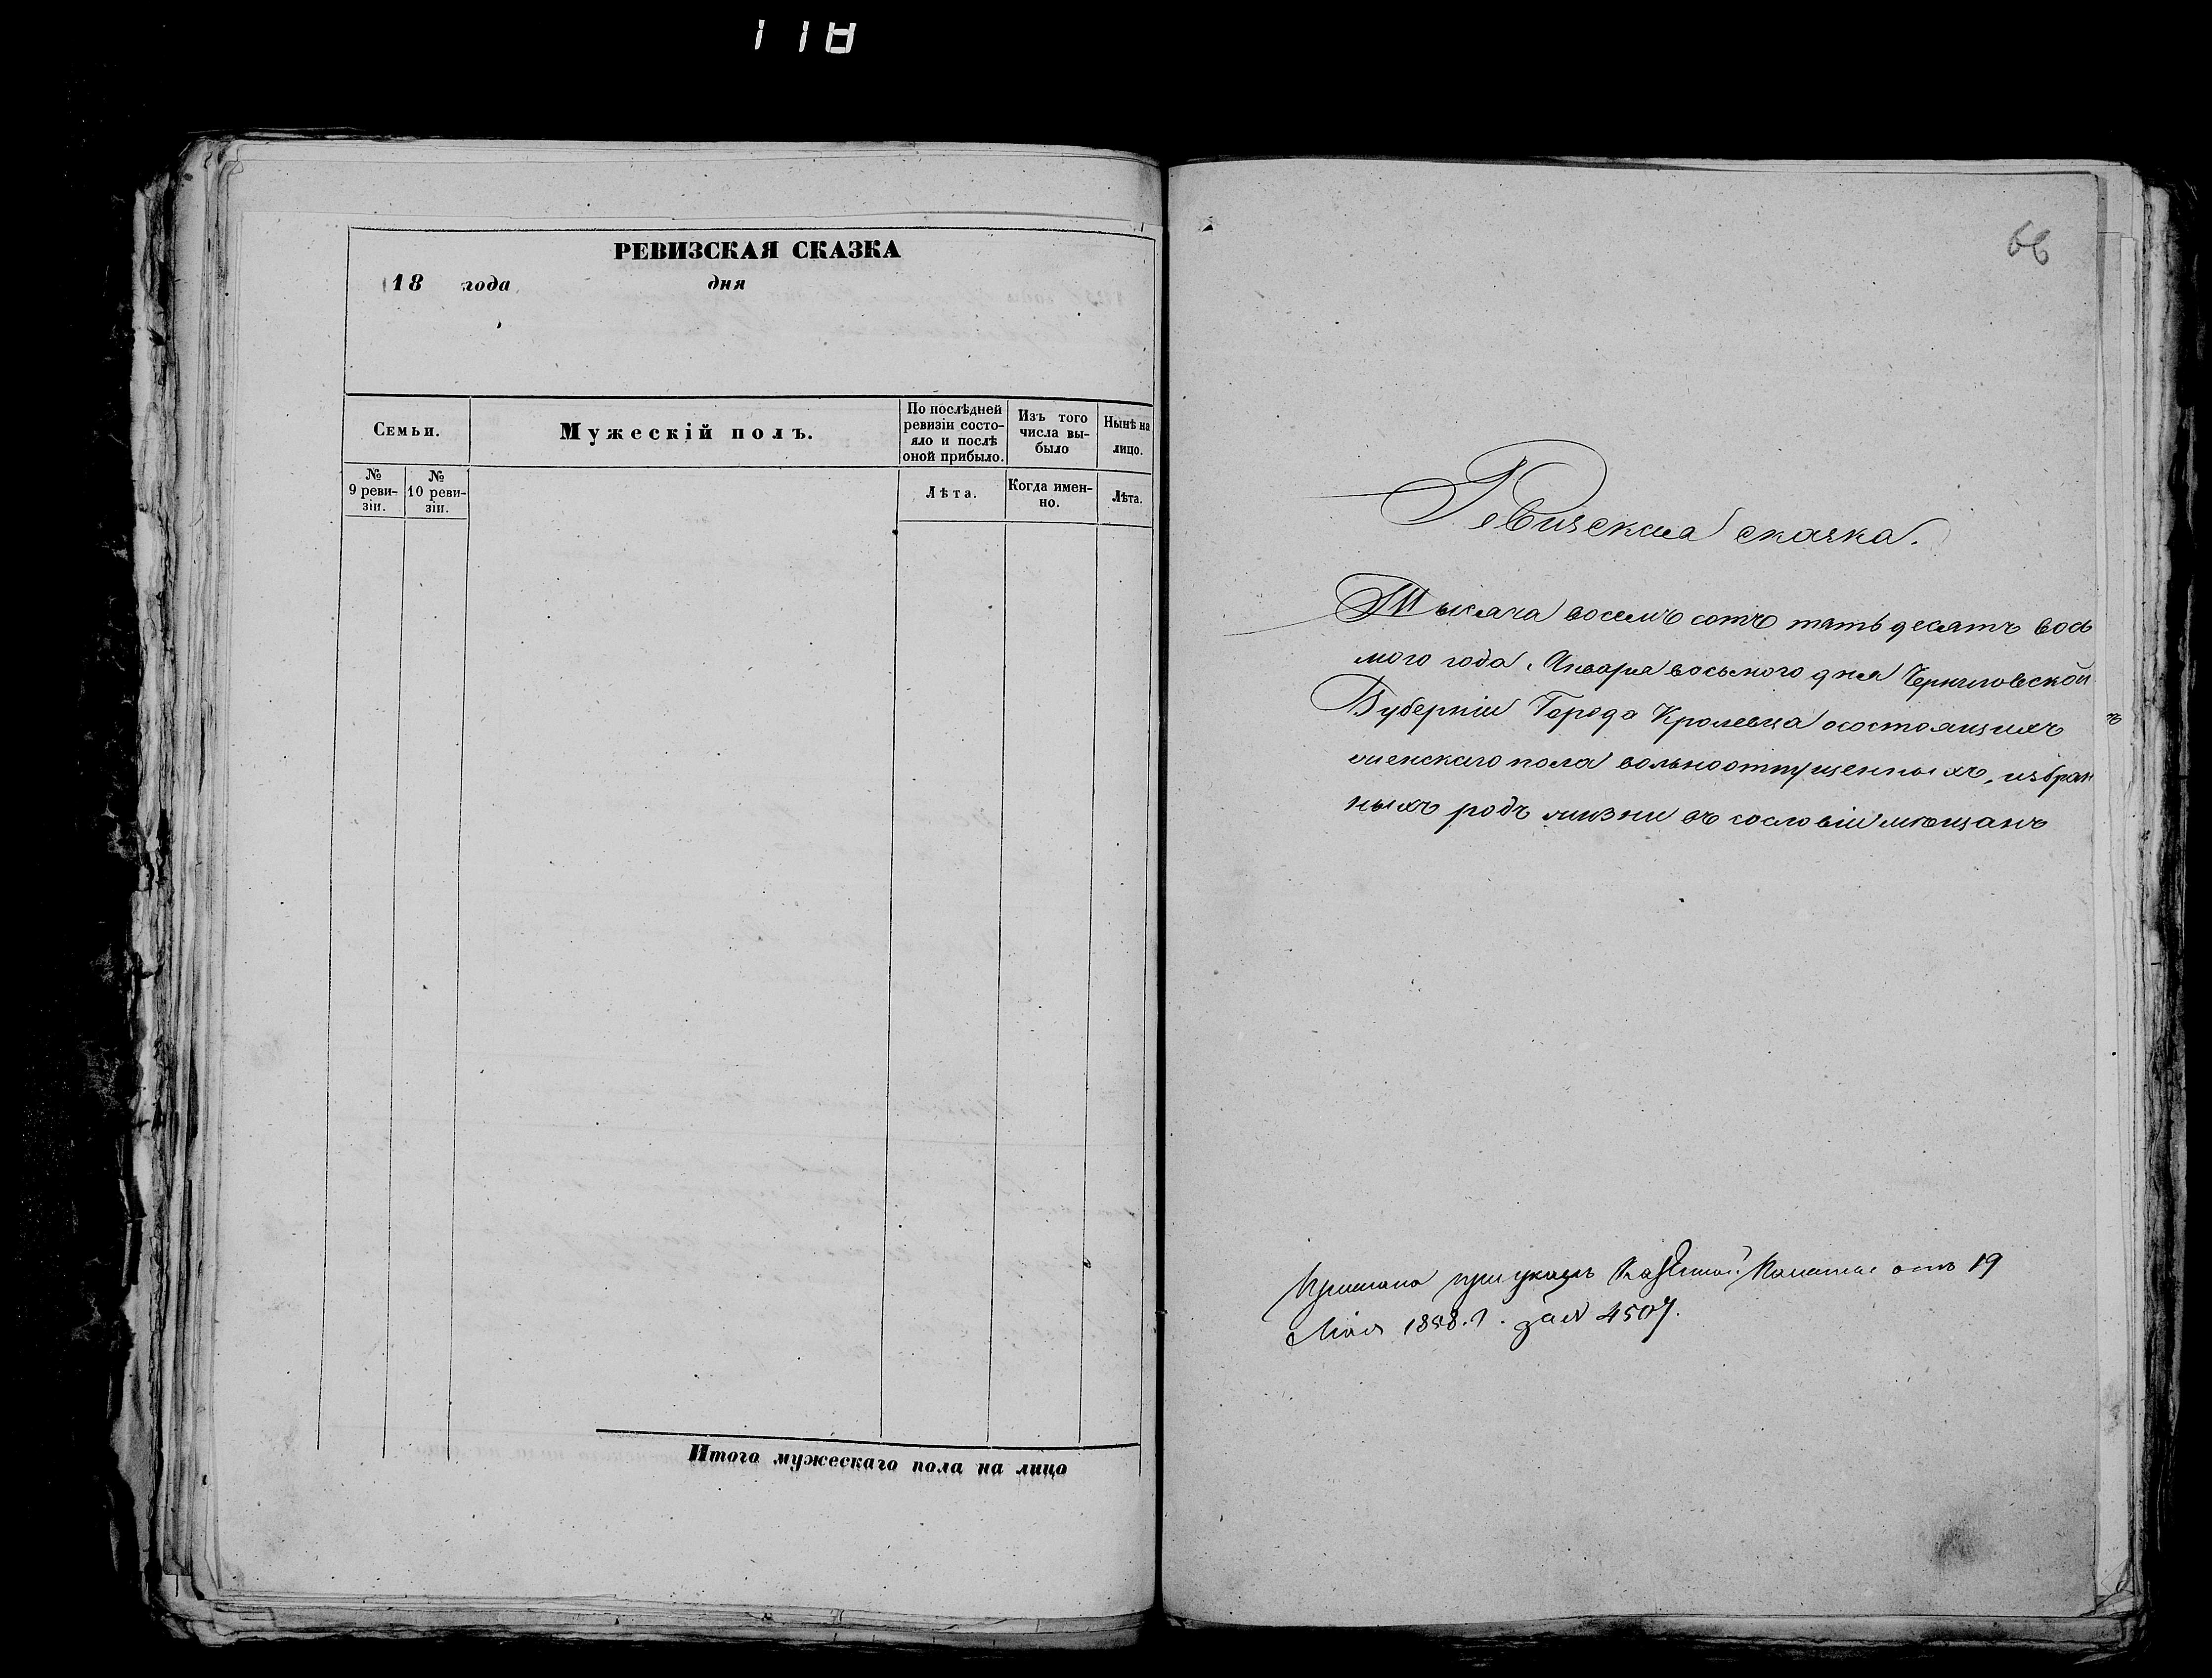 118
РЕВИЗСКАЯ СКАЗКА
18 года дня
Семьи.
Мужескій полъ.
По послѣдней
ревизіи состо-
яло и послѣ
оной прибыло.
Изъ того
числа вы-
было
Нынѣ на
лицо.
№
9 реви-
зіи.
№
10 реви-
зіи.
Лѣта.
Когда имен-
но.
Лѣта.
Итого мужескаго пола на лицо
66
Ревизская сказка.
Тысяча восемъ сотъ пять десятъ вось
мого года, Января восьмого дня Черниговской
Губерніи Города Кролевца осостоящихъ
женскаго пола вольноотпущенныхъ, избран
ныхъ родъ жизни въ сословіи мѣщанъ
при указѣ Казенной Палаты отъ 19
Мая 1858. г. за № 4507.